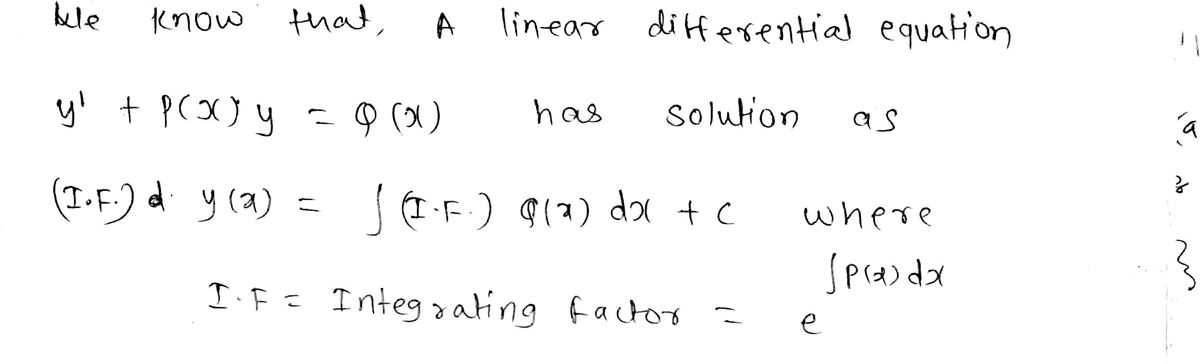 We know that, A linear differential equation
y' + P(x) y = Q(x) has solution as
(I.F.) d. y(x) = ∫ (I.F.) Q(x) dx + c where
I.F = Integrating factor = e^∫P(x)dx